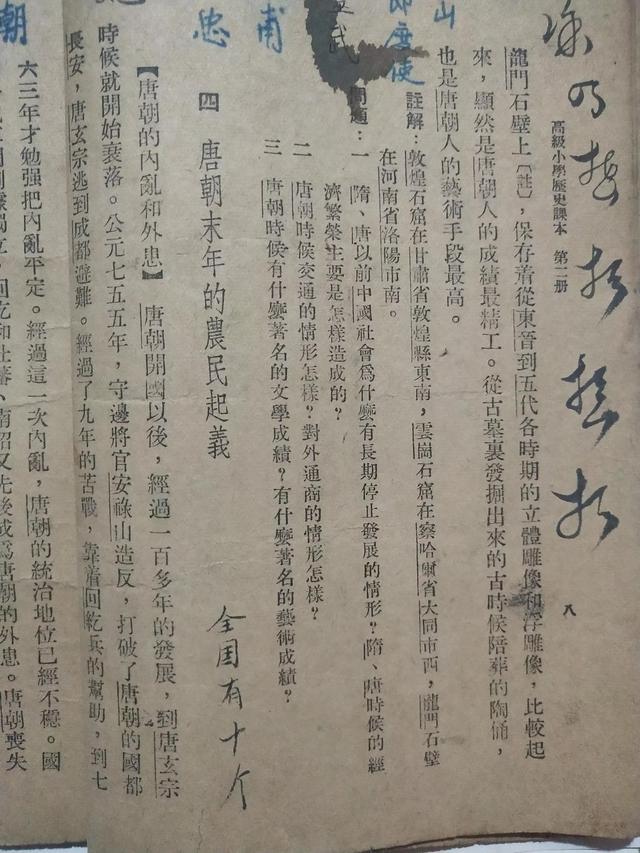 高級小學歷史課本 第二册
八
龍門石壁上〔註〕,保存着從東晉到五代各時期的立體雕像和浮雕像,比較起
來,顯然是唐朝人的成績最精工。從古墓裏發掘出來的古時候陪葬的陶俑,
也是唐朝人的藝術手段最高。
山
註解:敦煌石窟在甘肅省敦煌縣東南,雲崗石窟在察哈爾省大同市西,龍門石壁
節度使
在河南省洛陽市南。
問題:一 隋、唐以前中國社會爲什麼有長期停止發展的情形?隋、唐時候的經
武
濟繁榮主要是怎樣造成的?
二 唐朝時候交通的情形怎樣?對外通商的情形怎樣?
三 唐朝時候有什麼著名的文學成績?有什麼著名的藝術成績?
甫
四 唐朝末年的農民起義
全国有十个
忠
【唐朝的內亂和外患】 唐朝開國以後,經過一百多年的發展,到唐玄宗
時候就開始衰落。公元七五五年,守邊將官安祿山造反,打破了唐朝的國都
長安,唐玄宗逃到成都避難。經過了九年的苦戰,靠着回紇兵的幫助,到七
朝
六三年才勉强把內亂平定。經過這一次內亂,唐朝的統治地位已經不穩。國
獨立。回紇和吐蕃、南詔又先後成爲唐朝的外患。唐朝喪失